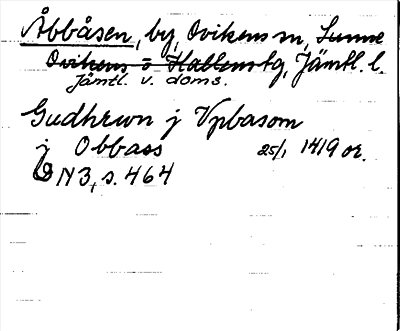 Åbbåsen, by, Ovikens sn, Sunne
Ovikens o Hallens tg, Jämtl. l.
Jämtl. v. doms.
Gudhrwn j Vpbasom
j Obbass 25/1 1419 or.
DN 3, s. 464